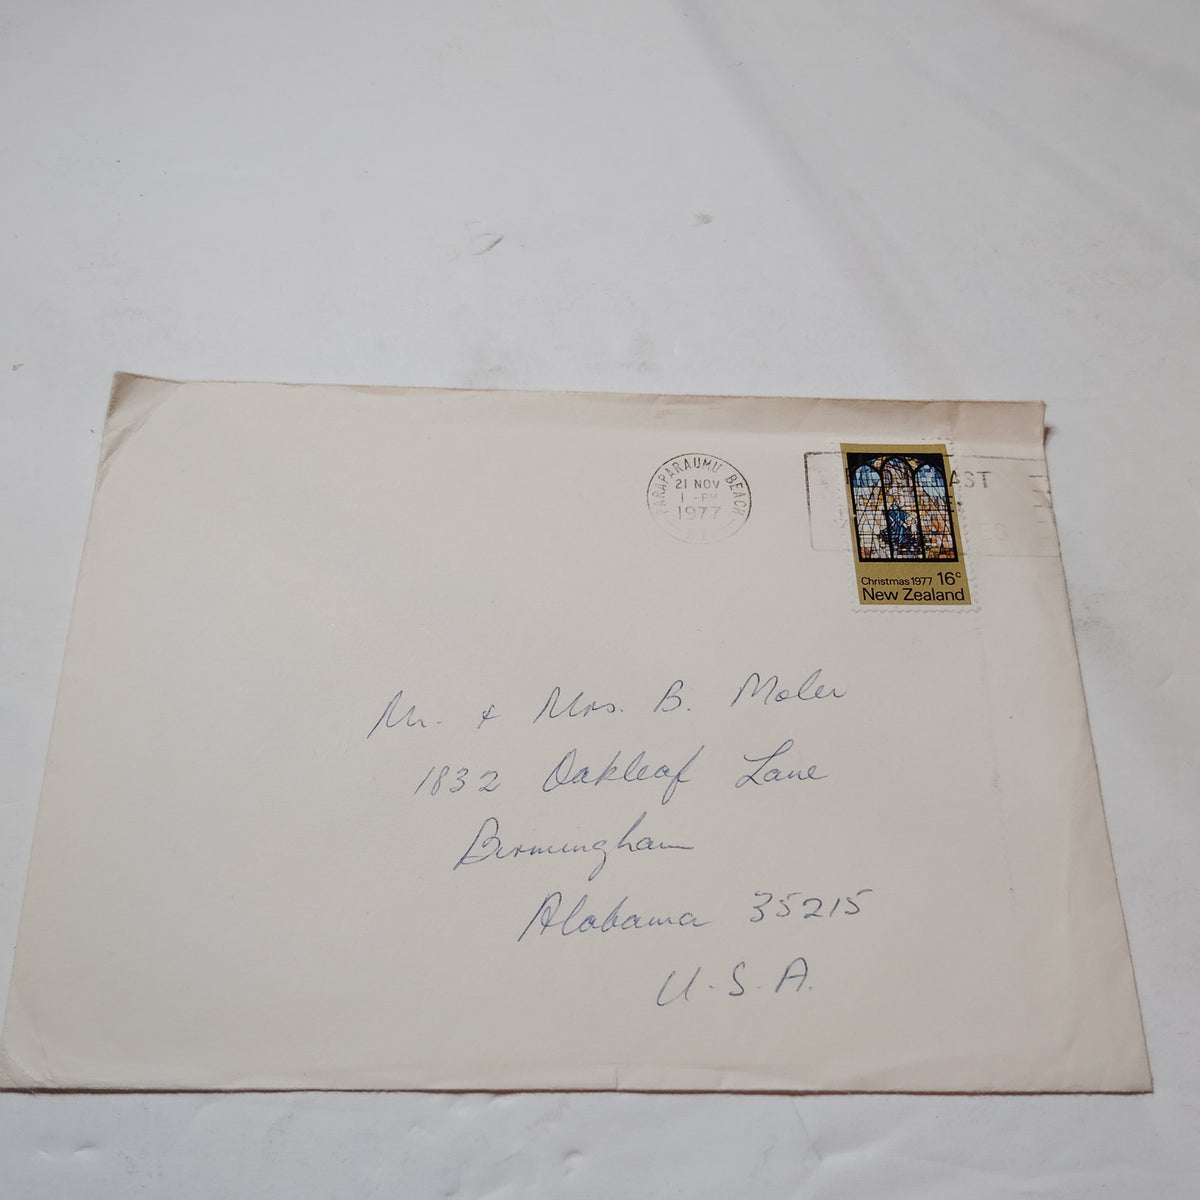 PARAPARAUMU BEACH
21 NOV
1 -PM
1977
N.Z.
AST
Christmas 1977 16c
New Zealand
Mr. + Mrs. B. Moler
1832 Oakleaf Lane
Birmingham
Alabama 35215
U.S.A.